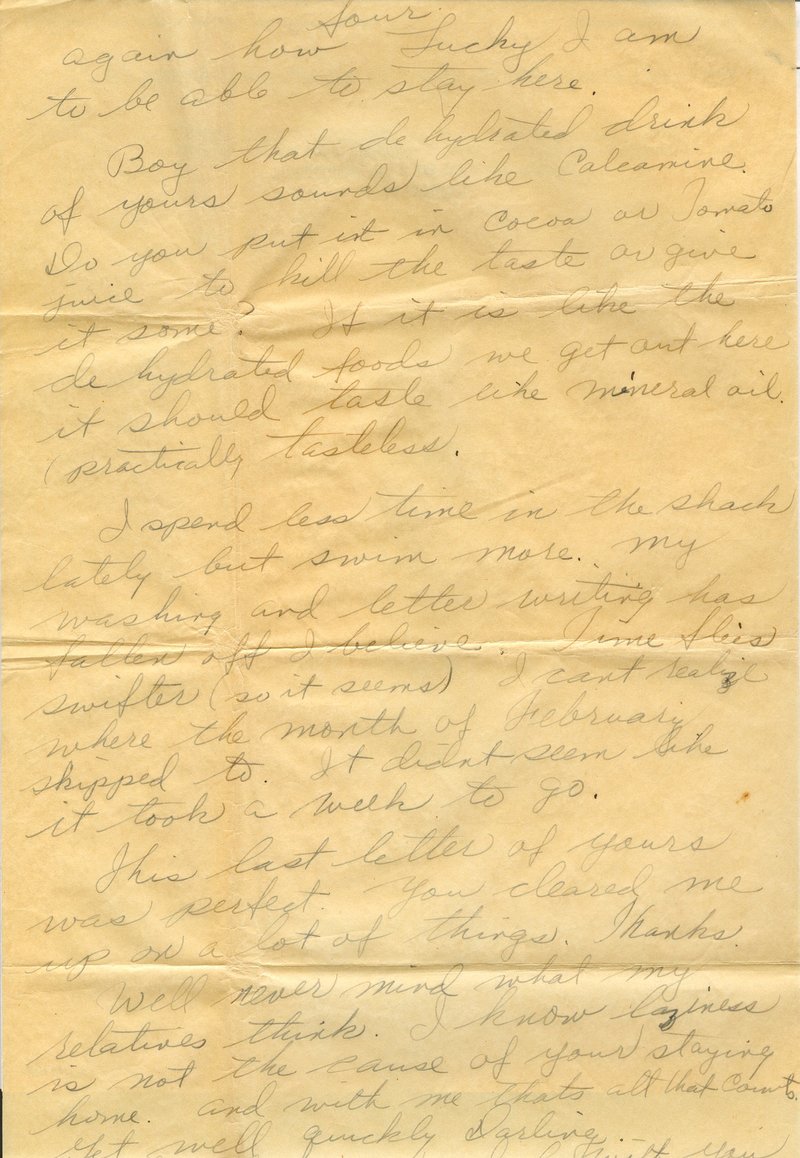 four.
again how Lucky I am
to be able to stay here.
Boy that de hydrated drink
of yours sounds like Calcamine.
Do you put it in cocoa or Tomato
juice to kill the taste or give
it some? If it is like the
de hydrated foods we get out here
it should taste like mineral oil.
(practically tasteless.
I spend less time in the shack
lately but swim more. My
washing and letter writing has
fallen off I believe. Time flies
swifter (so it seems) I cant realize
where the month of February
skipped to. It didnt seem like
it took a week to go.
This last letter of yours
was perfect. You cleared me
up on a lot of things. Thanks.
Well never mind what my
relatives think. I know laziness
is not the cause of your staying
home. and with me thats all that counts.
Get well quickly Darling.
you